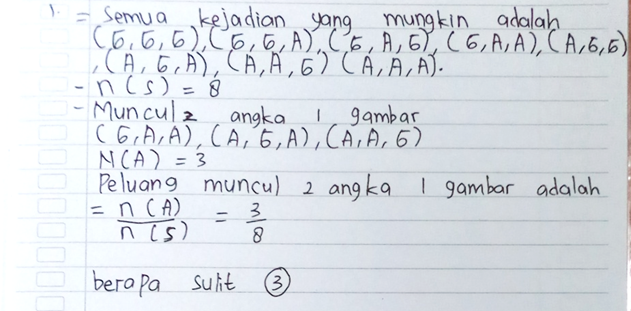 1. = Semua kejadian yang mungkin adalah
(G, G, G), (G, G, A), (G, A, G), (G, A, A), (A, G, G)
, (A, G, A), (A, A, G) (A, A, A).
- n (S) = 8
- Muncul 2 angka 1 gambar
(G, A, A), (A, G, A), (A, A, G)
N(A) = 3
Peluang muncul 2 angka 1 gambar adalah
= n (A) / n (S) = 3 / 8
berapa sulit ③